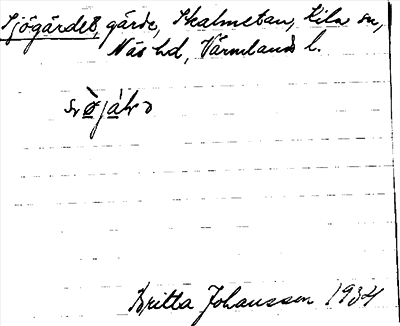 Sjögärdet, gärde, Skalmetan, Kila sn,
Näs hd, Värmlands l.
Britta Johansson 1934